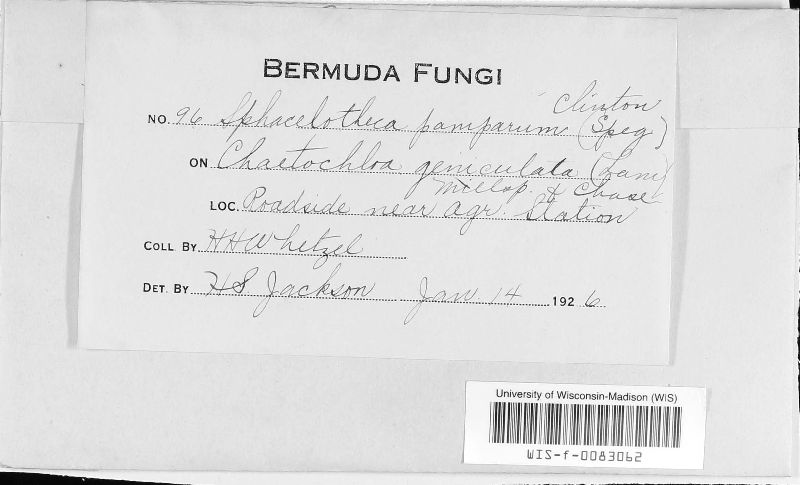 BERMUDA FUNGI
Clinton
NO. 96 Sphacelotheca pamparum (Speg)
ON Chaetochloa geniculata (Lam)
Millsp. & Chase
LOC. Roadside near Agr. Station
COLL. BY HH Whetzel
DET. BY HS Jackson Jan 14 1926
University of Wisconsin-Madison (WIS)
WIS-f-0083062